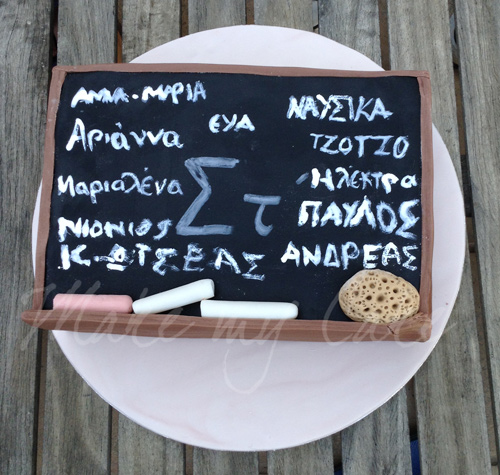 ΑΝΝΑ-ΜΑΡΙΑ
Αριάννα
ΕΥΑ
Μαριαλένα
ΝΙΟΝΙΟΣ
Κ. ΩΤΣΕΑΣ
Στ
ΝΑΥΣΙΚΑ
ΤΖΟΤΖΟ
Ηλέκτρα
ΠΑΥΛΟΣ
ΑΝΔΡΕΑΣ
Make my Cake